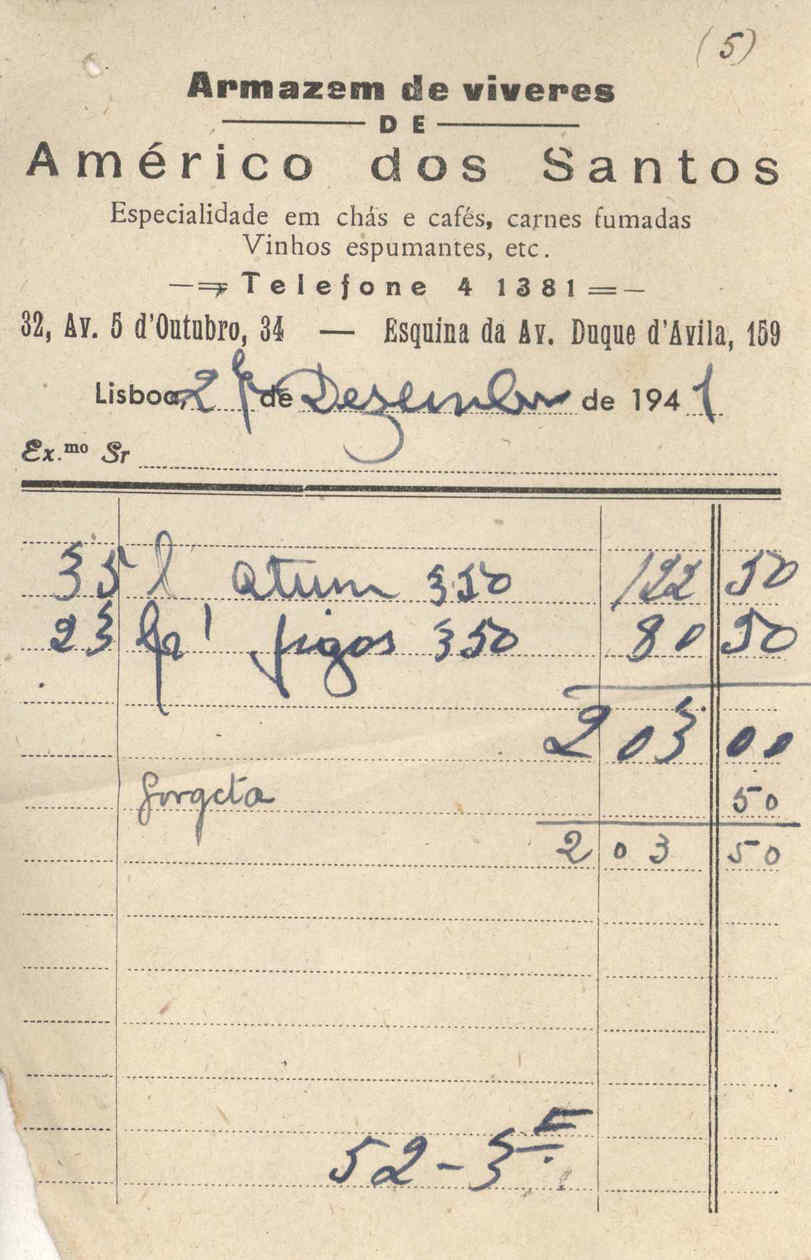 (5)
Armazem de viveres
DE
Américo dos Santos
Especialidade em chás e cafés, carnes fumadas
Vinhos espumantes, etc.
Telefone 4 1381
32, Av. 5 d'Outubro, 34 — Esquina da Av. Duque d'Avila, 159
Lisboa, de Dezembro de 1941
Ex.mo Sr
35 l atum 350 122 50
23 figos 350 80 50
203 00
Gorgeta 50
203 50
52-3E